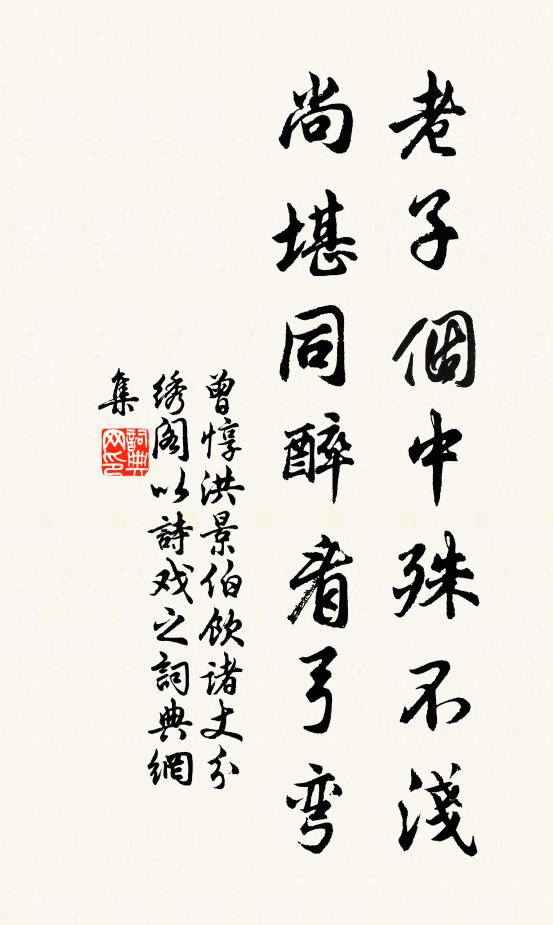 老子個中殊不淺
尚堪同醉看弓彎
曾惇洪景伯飲諸丈分
绣阁以詩戏之詞典網
集
詞典網印